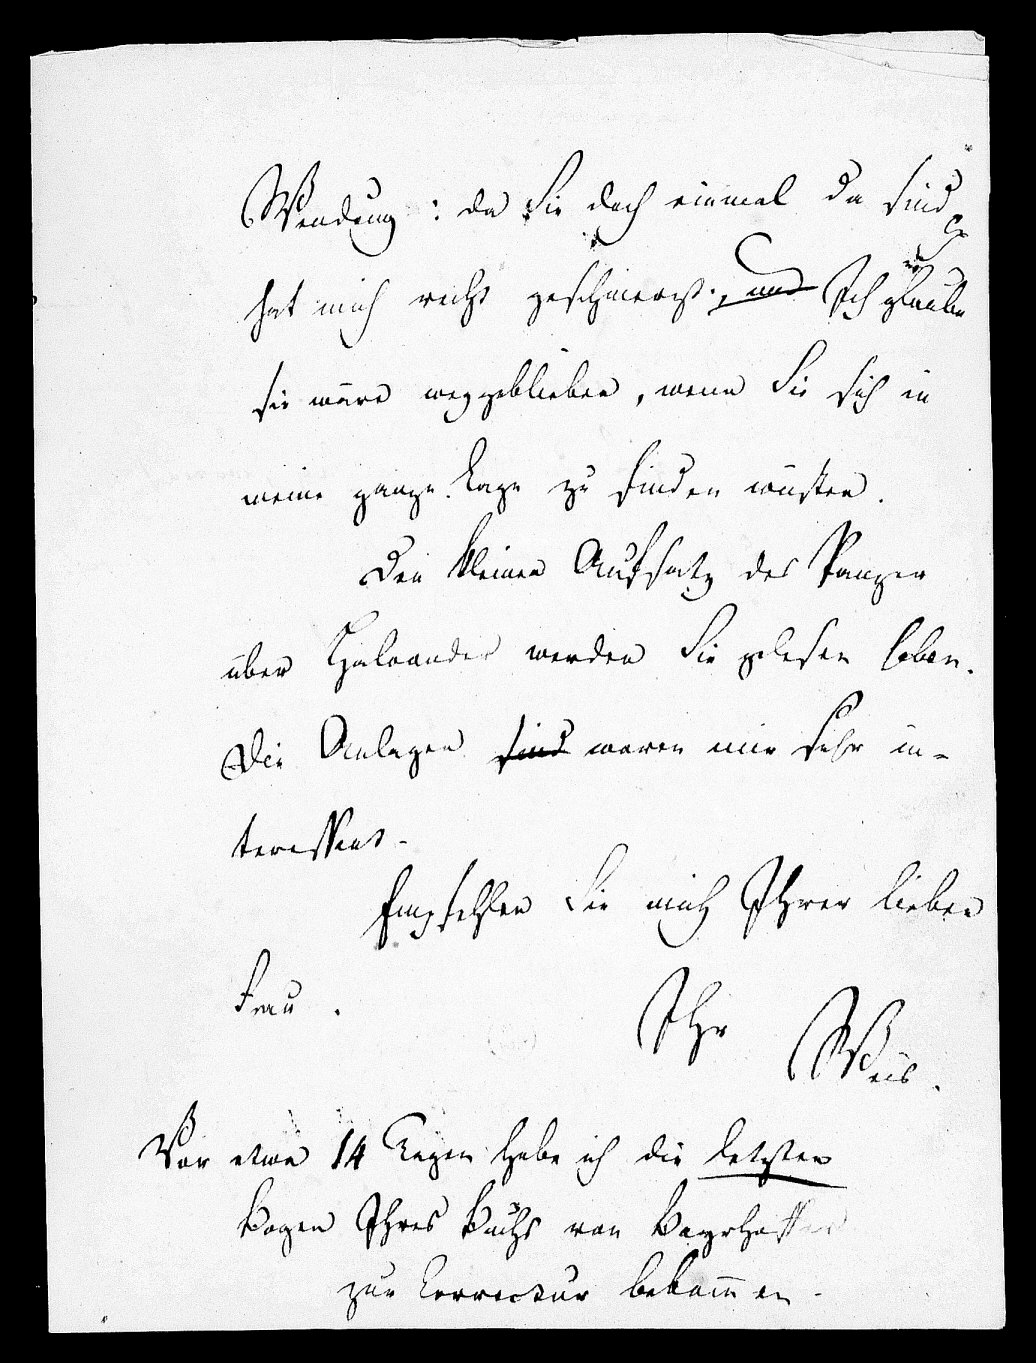 Wendung: da Sie doch einmal da sind
hat mich recht geschmerzt, und Ich glaube
sie wäre weggeblieben, wenn Sie sich in
meine ganze Lage zu finden wüsten.
Den kleinen Aufsatz des Panzer
über Haloander werden Sie gelesen haben.
Die Anlagen sind waren mir sehr in-
teressant.
Empfehlen Sie mich Ihrer lieben
Frau.
Ihr Weis.
Vor etwa 14 Tagen habe ich die letzten
Bogen Ihres Buchs von Bayrhoffer
zur Correctur bekommen.